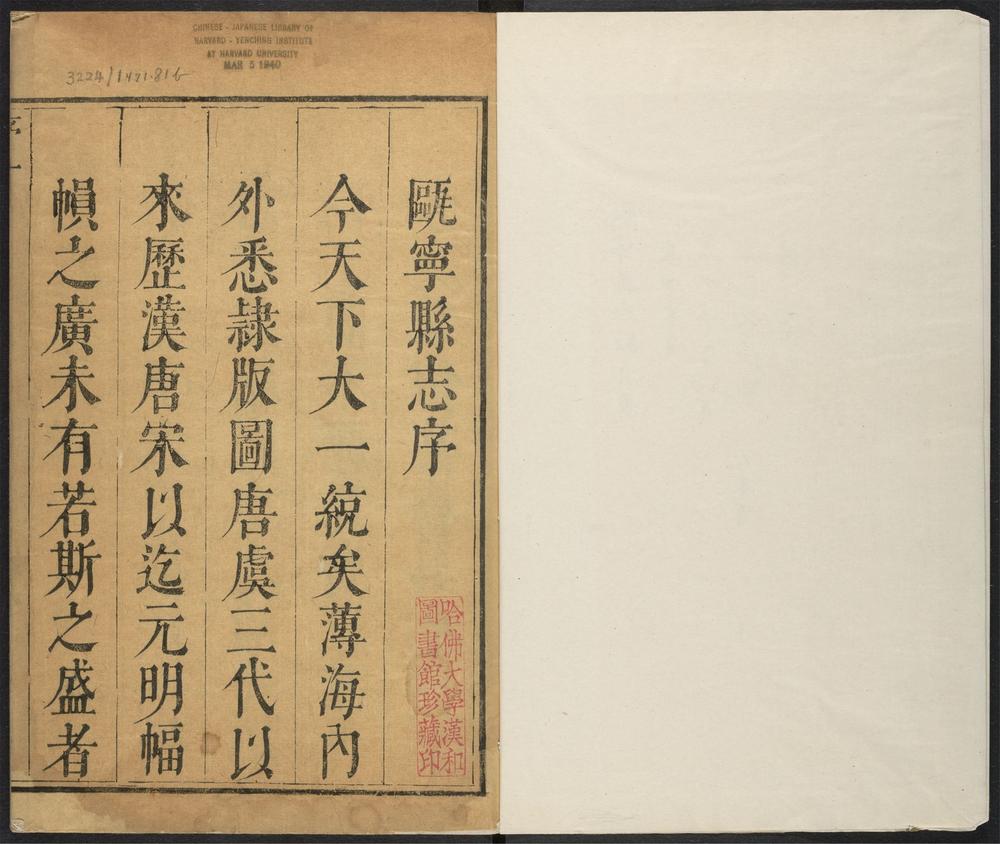 CHINESE - JAPANESE LIBRARY OF
HARVARD - YENCHING INSTITUTE
AT HARVARD UNIVERSITY
MAR 5 1940
3224/1471.816
甌寧縣志序
今天下大一統矣薄海內
外悉隷版圖唐虞三代以
來歷漢唐宋以迄元明幅
幀之廣未有若斯之盛者
序
一
哈佛大學漢和
圖書館珍藏印